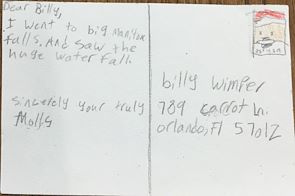 Dear Billy,
I went to big Manitou
falls. And saw the
huge water fall.
sincerely your truly
Molly
billy Wimper
789 carrot ln.
orlando, Fl 57012